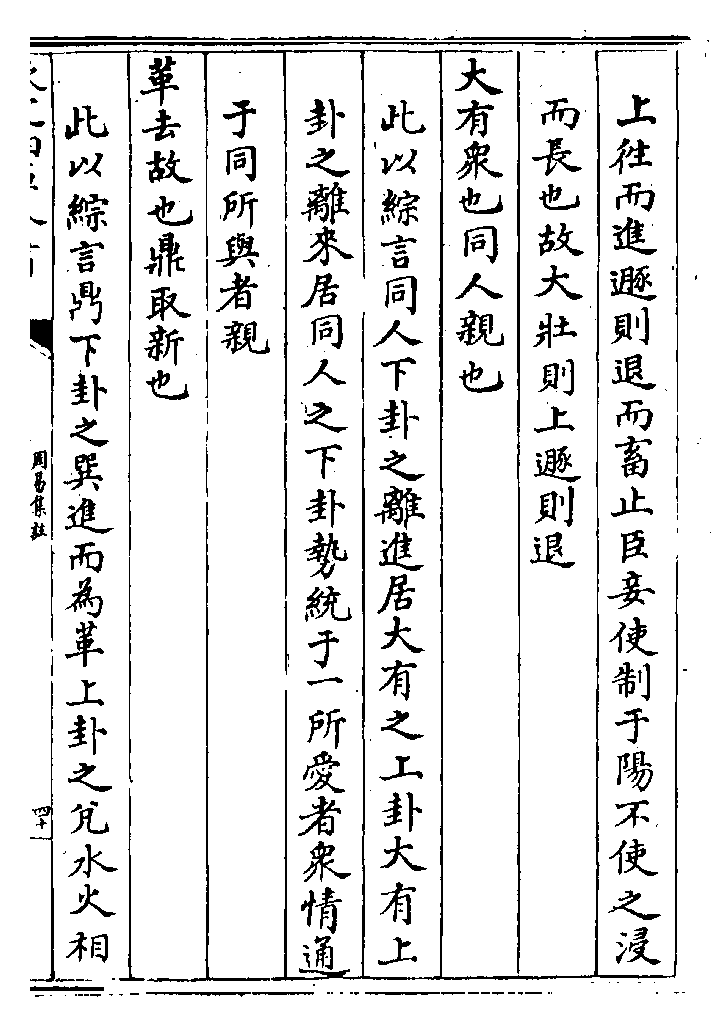 上往而進遯則退而畜止臣妾使制于陽不使之浸
而長也故大壯則上遯則退
大有衆也同人親也
此以綜言同人下卦之離進居大有之上卦大有上
卦之離來居同人之下卦勢統于一所愛者衆情通
于同所與者親
革去故也鼎取新也
此以綜言鼎下卦之巽進而為革上卦之兌水火相
周易集註
四十